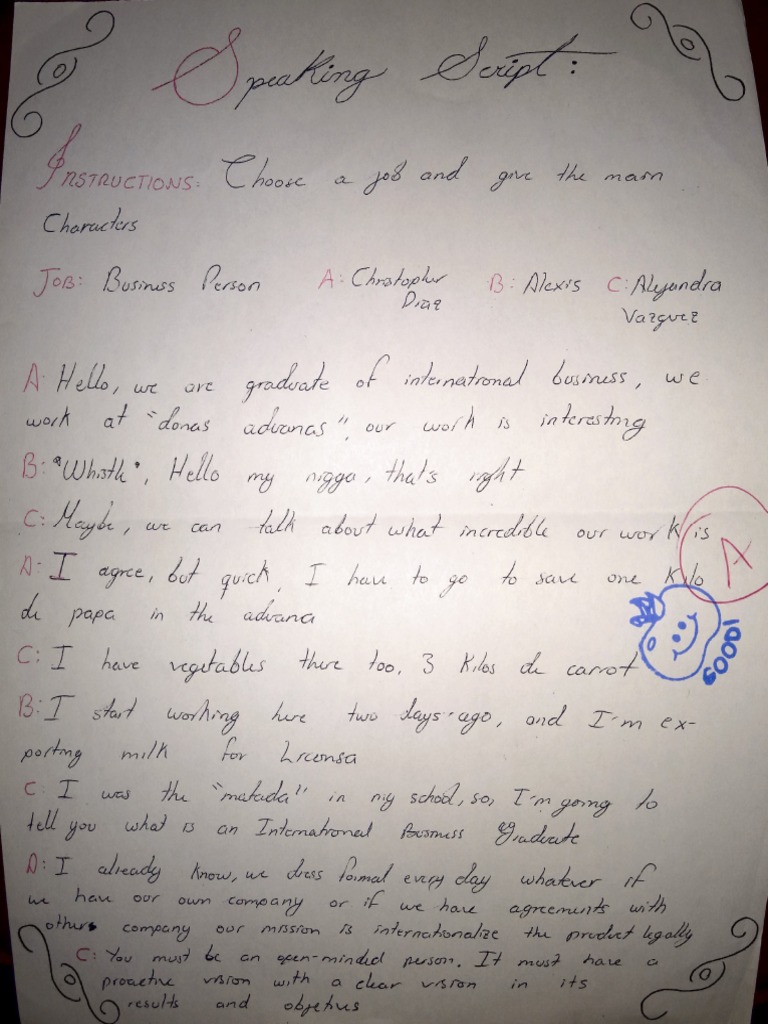 Speaking Script:
INSTRUCTIONS: Choose a job and give the main
Characters
JOB: Business Person A: Christopher B: Alexis C: Alejandra
Diaz Vazquez
A: Hello, we are graduate of international business, we
work at "donas aduanas", our work is interesting
B: "Whistle", Hello my nigga, that's right
C: Maybe, we can talk about what incredible our work is
A: I agree, but quick, I have to go to save one kilo
de papa in the aduana
C: I have vegetables there too, 3 kilos de carrot
B: I start working here two days ago, and I'm ex-
porting milk for Liconsa
C: I was the "matada" in my school, so, I'm going to
tell you what is an International Business Graduate
A: I already know, we dress formal every day whatever if
we have our own company or if we have agreements with
others company our mission is internationalize the product legally
C: You must be an open-minded person. It must have a
proactive vision with a clear vision in its
results and objetives
A
GOOD!